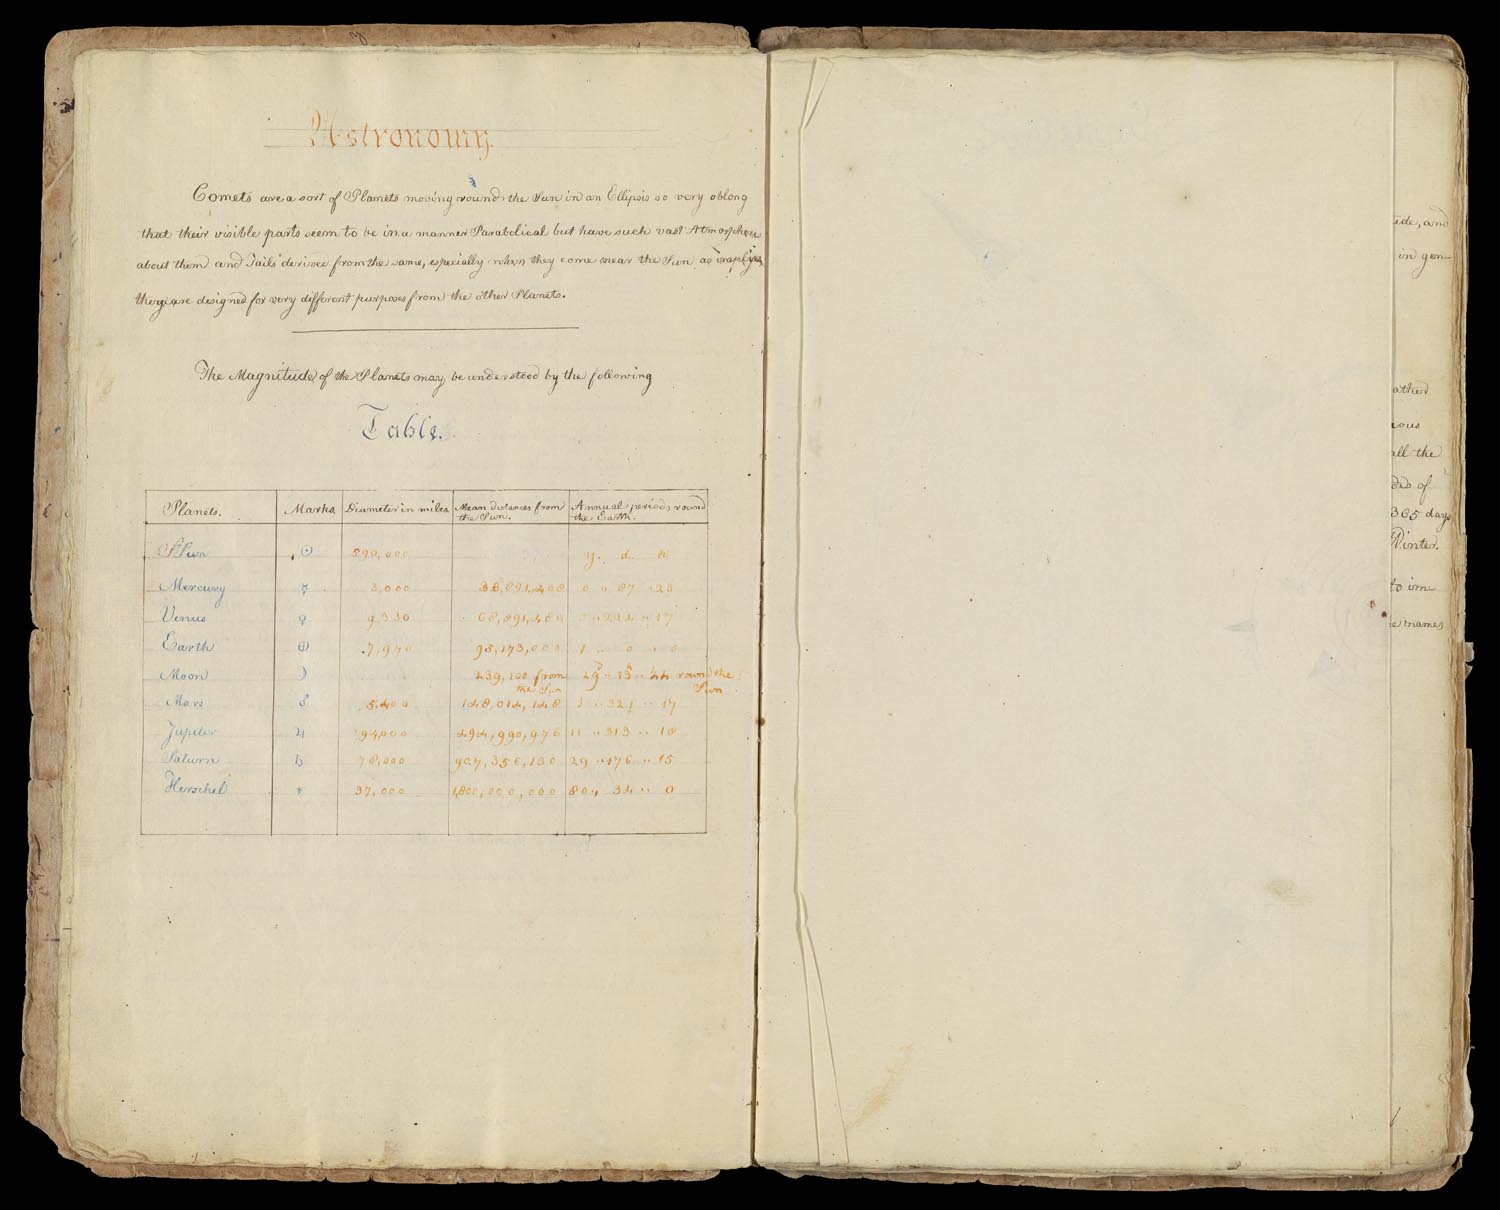 Astronomy.
Comets are a sort of Planets moving round the Sun in an Ellipsis so very oblong
that their visible parts seem to be in a manner Parabolical but have such vast Atmospheres
about them and Tails derived from the same, especially when they come near the Sun as implyes
they are designed for very different purposes from the other Planets.
The Magnitude of the Planets may be understood by the following
Table.
Planets. Marks Diameter in miles Mean distances from the Sun. Annual periods round the Earth.
Sun ☉ 890,000 y. d. h
Mercury ☿ 3,000 36,891,468 0 " 87 " 23
Venus ♀ 9,330 68,891,486 0 " 224 " 17
Earth ⊕ 7,970 98,173,000 1 " 0 " 0
Moon ☽ 239,100 from the Sun 29 " 13 " 44 round the Sun
Mars ♂ 5,400 148,014,148 1 " 321 " 17
Jupiter ♃ 94,000 494,990,976 11 " 313 " 18
Saturn ♄ 78,000 907,356,130 29 " 176 " 15
Herschel 37,000 1,800,000,000 80 " 34 " 0
ude, and
in gen
ather
ious
all the
des of
365 days
Winter.
to im
e names